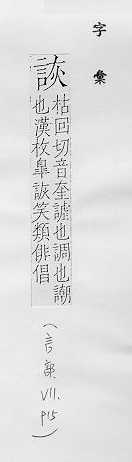 字彙
詼
枯回切音奎謔也調也謿
也漢枚皐詼笑類俳倡
(言部 VII. P15)